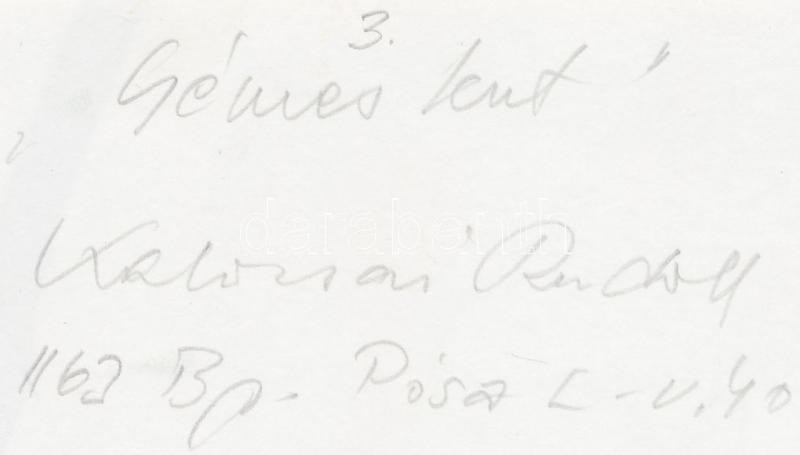 3.
„Gémes kut"
Kalocsai Rudolf
1163 Bp. Pósa L-u. 40
darabanth